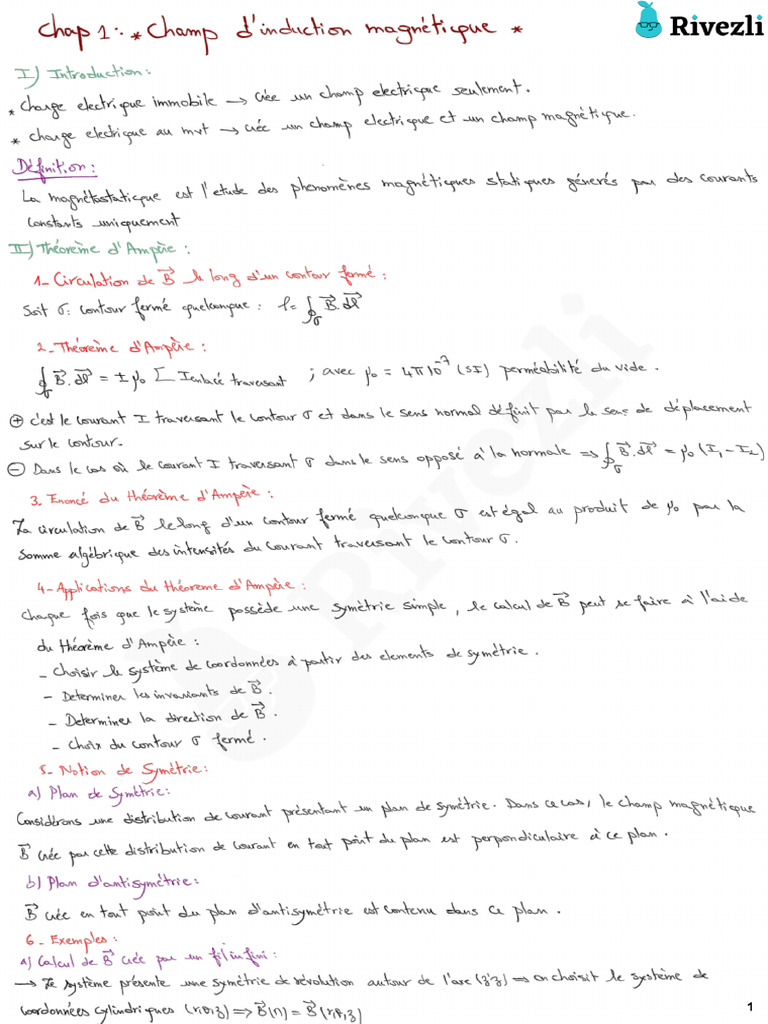 Chap 1: * Champ d'induction magnétique *
Rivezli
I) Introduction:
* charge electrique immobile → crée un champ electrique seulement.
* charge electrique au mvt → crée un champ electrique et un champ magnétique.
Définition:
La magnétostatique est l'etude des phenomènes magnétiques statiques générés par des courants
constants uniquement
II) Théorème d'Ampère:
1- Circulation de B⃗ le long d'un contour fermé:
Soit σ: contour fermé quelconque: ρ = ∮σ B⃗.dl⃗
2- Théorème d'Ampère:
∮σ B⃗.dl⃗ = ± μ₀ Σ I enlacé traversant ; avec μ₀ = 4π10⁻⁷ (SI) perméabilité du vide.
⊕ c'est le courant I traversant le contour σ et dans le sens normal définit par le sens de déplacement
sur le contour.
⊖ Dans le cas où le courant I traversant σ dans le sens opposé à la normale ⟹ ∮σ B⃗.dl⃗ = μ₀ (I₁ - I₂)
3. Enoncé du théorème d'Ampère:
La circulation de B⃗ le long d'un contour fermé quelconque σ est égal au produit de μ₀ par la
somme algébrique des intensités du courant traversant le contour σ.
4- Applications du théoreme d'Ampère:
Chaque fois que le système possède une symétrie simple, le calcul de B⃗ peut se faire à l'aide
du théorème d'Ampère:
- Choisir le système de coordonnées à partir des elements de symétrie.
- Determiner les invariants de B⃗.
- Determiner la direction de B⃗.
- Choix du contour σ fermé.
5- Notion de Symétrie:
a) Plan de Symétrie:
Considérons une distribution de courant présentant un plan de symétrie. Dans ce cas, le champ magnétique
B⃗ crée par cette distribution de courant en tout point du plan est perpendiculaire à ce plan.
b) Plan d'antisymétrie:
B⃗ crée en tout point du plan d'antisymétrie est contenu dans ce plan.
6- Exemples:
a) Calcul de B⃗ crée par un fil infini:
→ Le système présente une symétrie de révolution autour de l'axe (z'z) ⟹ on choisit le système de
coordonnées cylindriques (r,θ,z) ⟹ B⃗(M) = B⃗(r,θ,z)
1